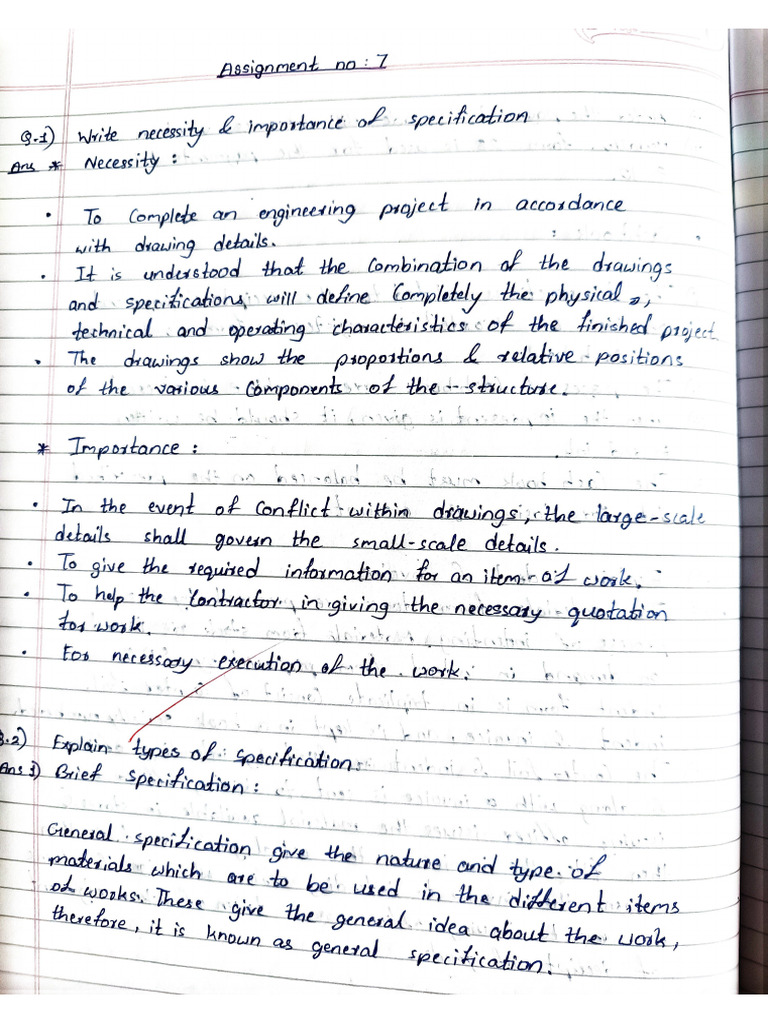 Assignment no : 7
Q.1) Write necessity & importance of specification
Ans * Necessity :
• To Complete an engineering project in accordance
with drawing details.
• It is understood that the Combination of the drawings
and specifications, will define Completely the physical,
technical and operating characteristics of the finished project
• The drawings show the proportions & relative positions
of the various Components of the structure.
* Importance :
• In the event of Conflict within drawings, the large-scale
details shall govern the small-scale details.
• To give the required information for an item of work.
• To help the Contractor in giving the necessary quotation
for work.
• For necessary execution of the work.
Q.2) Explain types of specification.
Ans 1) Brief specification :
General specification give the nature and type of
materials which are to be used in the different items
of works. These give the general idea about the work,
therefore, it is known as general specification.